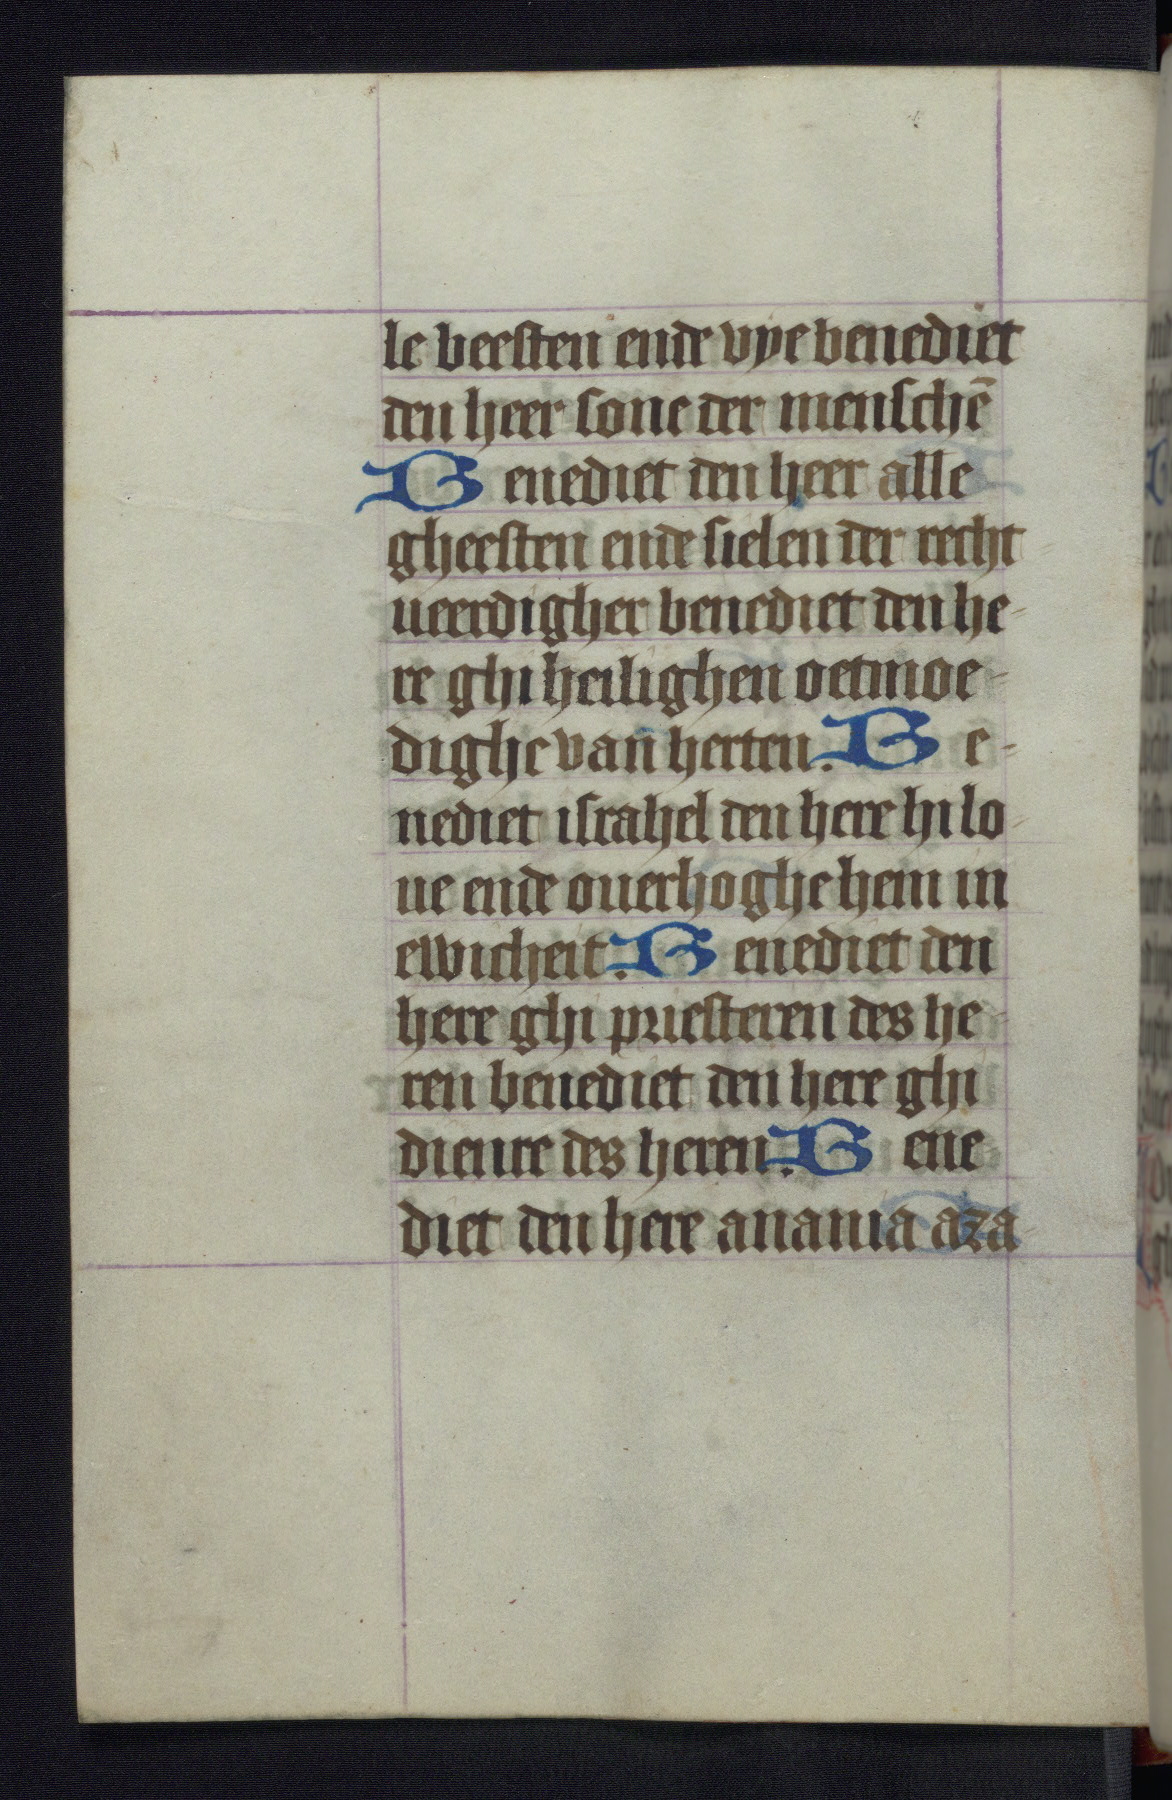 le beesten ende vye benediet
den heer sone der menschē
Benediet den heer alle
gheesten ende sielen der recht-
ueerdigher benediet den he-
re ghi heilighen oetmoe-
dighe van herten. Be-
nediet israhel den here hi lo-
ue ende ouerhoghe hem in
ewicheit. Benediet den
here ghi priesteren des he-
ren benediet den here ghi
dienre des heren. Bene
diet den here anania aza-